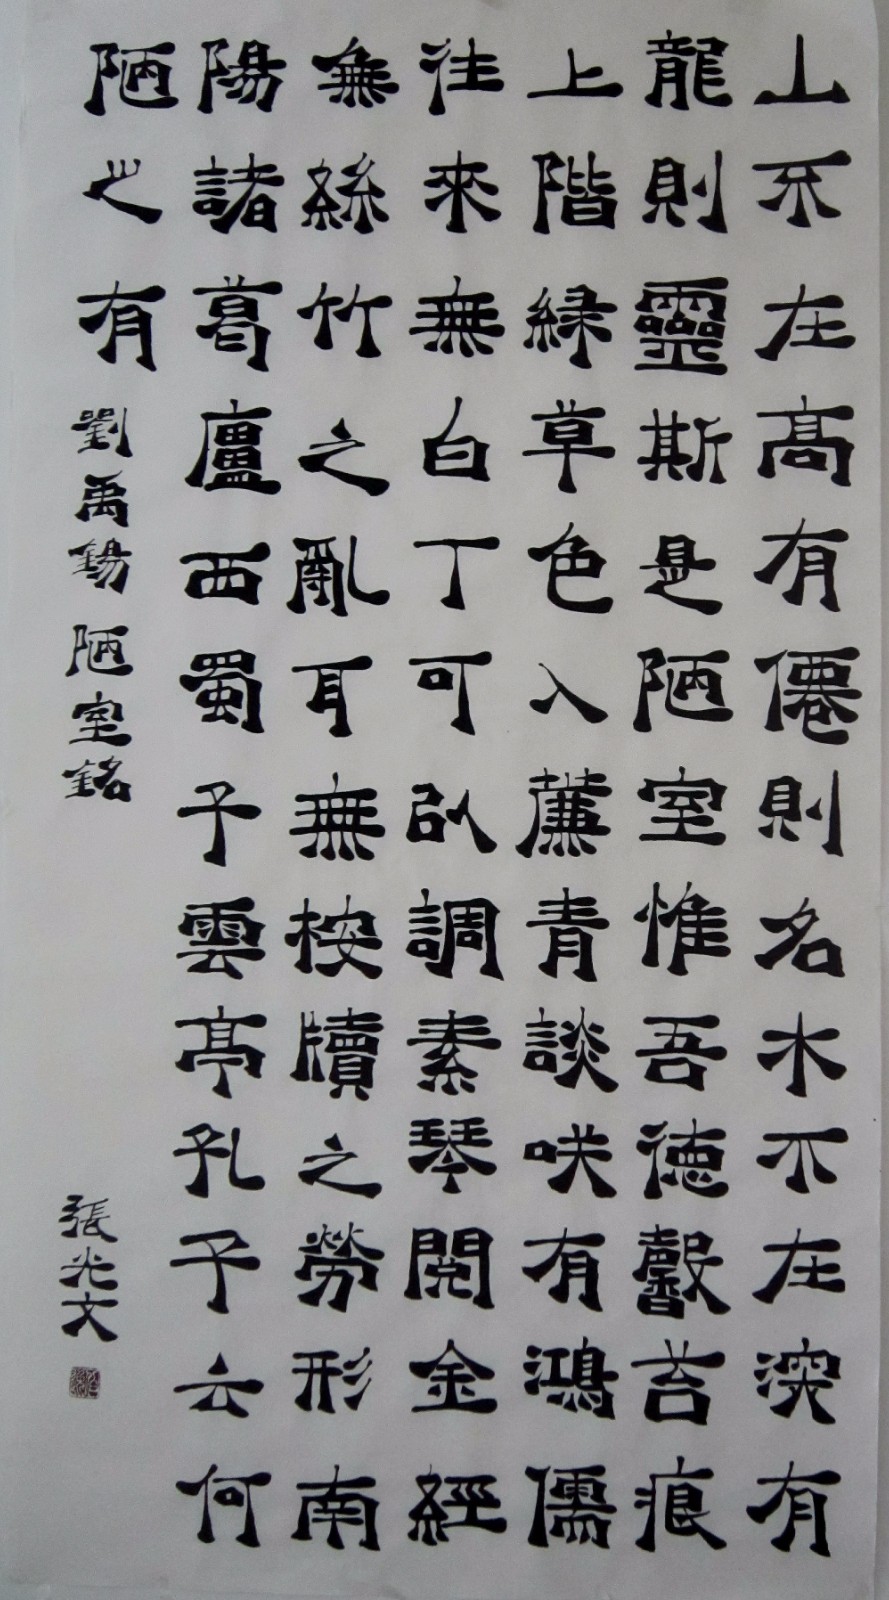 山不在髙有僊則名水不在深有
龍則靈斯是陋室惟吾徳馨苔痕
上階緑草色入簾青談咲有鴻儒
往來無白丁可以調素琴閲金經
無絲竹之亂耳無桉牘之勞形南
陽諸葛廬西蜀子雲亭孔子云何
陋之有 劉禹錫陋室銘
張光文